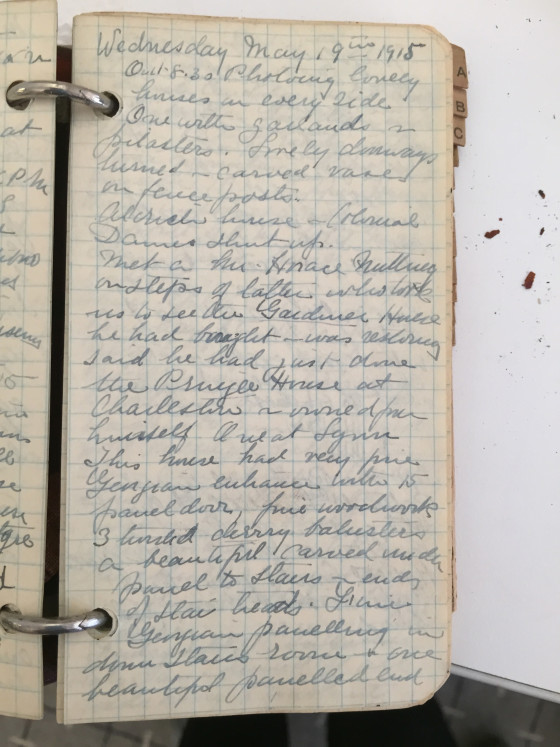 Wednesday May 19th 1915
Out 8.30 Photoing lovely
houses on every side
One with garlands &
pilasters. Lovely doorways
turned & carved vases
on fence posts.
Aldrich house & Colonial
Dames shut up.
Met a Mr. Horace Nutting
on steps of latter who took
us to see the Gardiner House
he had bought & was restoring
said he had just done
the House at
Charleston & owned four
himself One at Lynn
This house had very fine
Georgian entrance with 15
panel door, fine woodwork
3 turned cherry balusters
a beautiful carved under
panel to stairs & ends
of stair heads. Fine
Georgian panelling in
down stairs room & one
beautiful panelled end
A
B
C
at
P.M